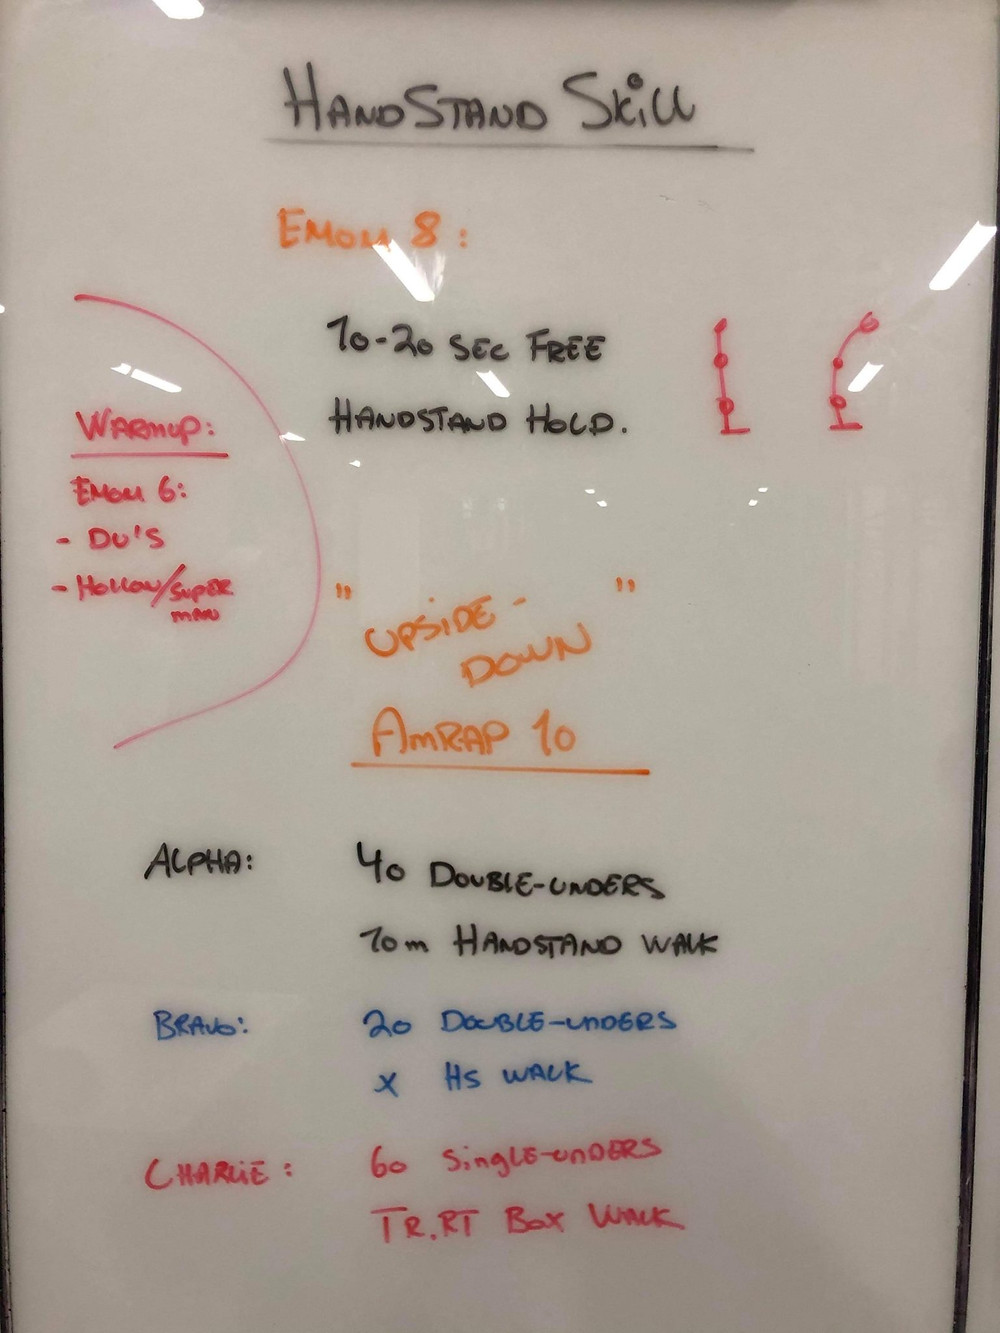 HANDSTAND SKILL
EMOM 8:
10-20 SEC FREE
HANDSTAND HOLD.
WARMUP:
EMOM 6:
- DU'S
- HOLLOW/SUPER
MAN
"UPSIDE-
DOWN"
AMRAP 10
ALPHA: 40 DOUBLE-UNDERS
10m HANDSTAND WALK
BRAVO: 20 DOUBLE-UNDERS
x HS WALK
CHARLIE: 60 SINGLE-UNDERS
TR.RT BOX WALK